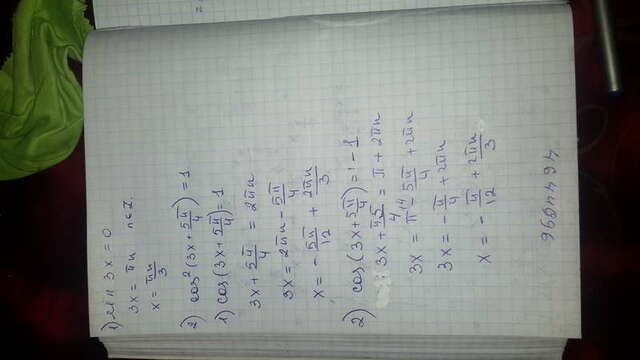 1) sin 3x = 0
3x = πn n∈Z.
x = πn/3
2) cos²(3x + 5π/4) = 1
1) cos(3x + 5π/4) = 1
3x + 5π/4 = 2πn
3x = 2πn - 5π/4
x = - 5π/12 + 2πn/3
2) cos(3x + 5π/4) = - 1
3x + π5/4 = π + 2πn
3x = π - 5π/4 + 2πn
3x = - π/4 + 2πn
x = - π/12 + 2πn/3